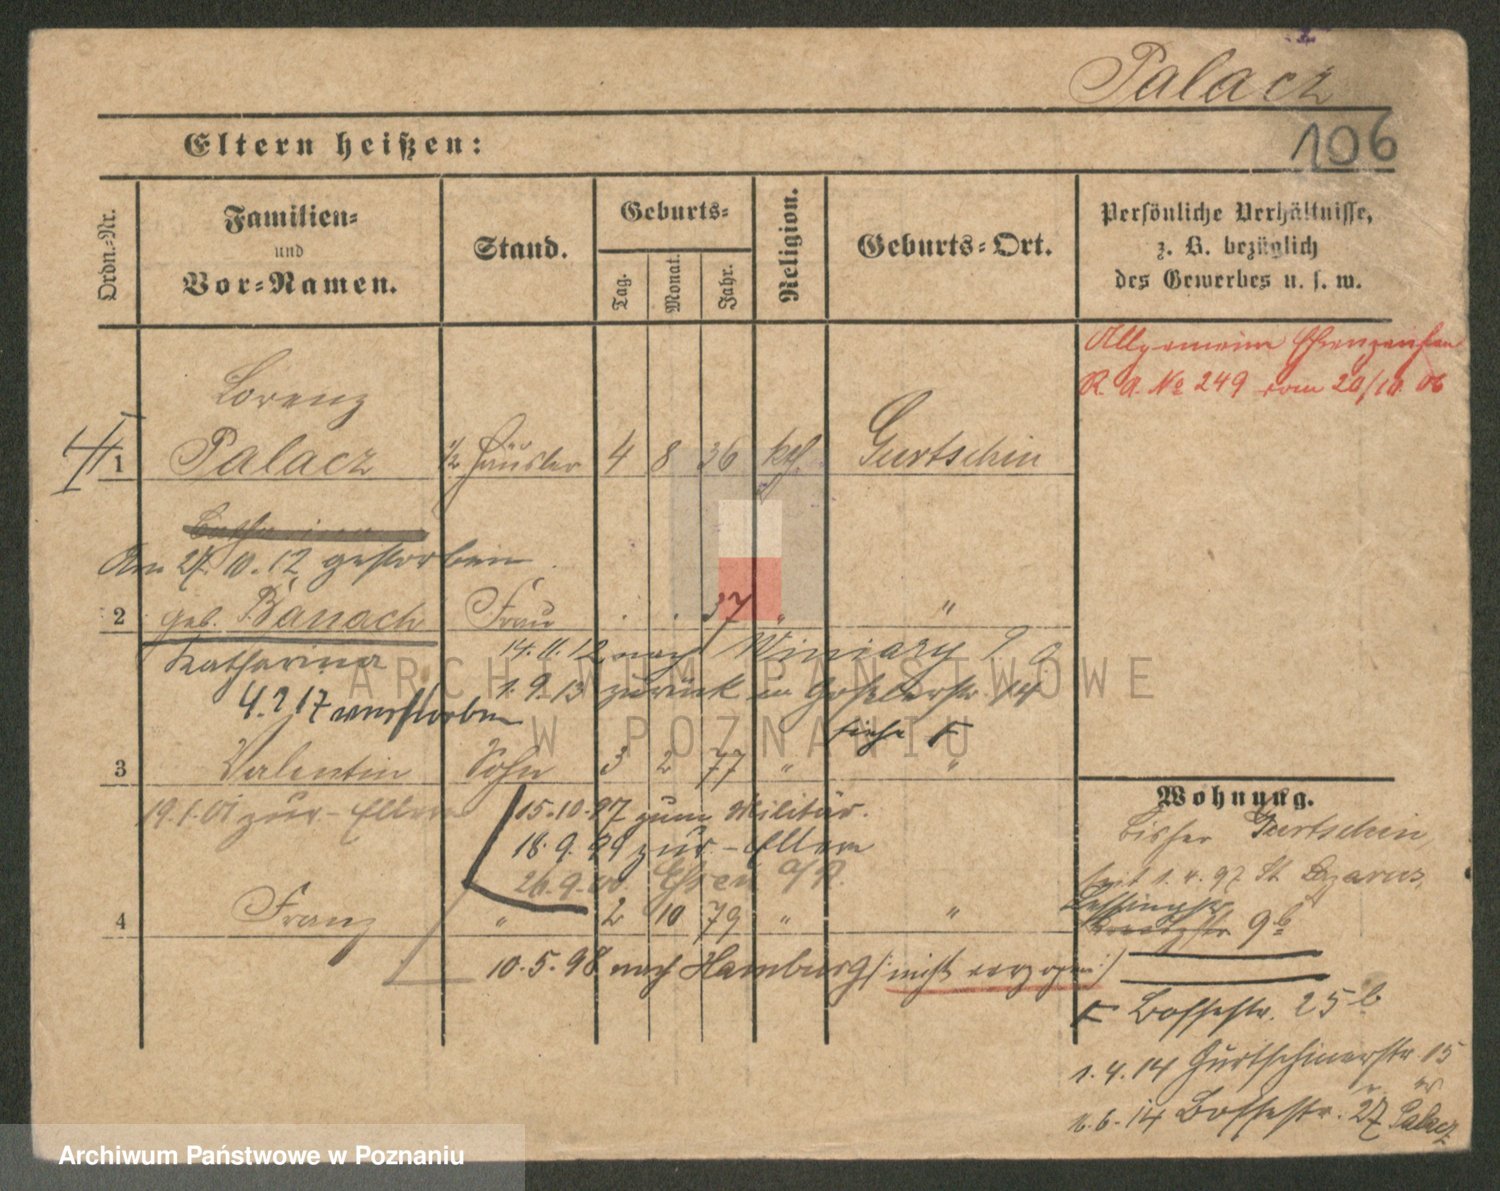 Palacz
106
Eltern heißen:
Ordn.-Nr.
Familien-
und
Vor-Namen.
Stand.
Geburts-
Tag.
Monat.
Jahr.
Religion.
Geburts-Ort.
Persönliche Verhältnisse,
z. B. bezüglich
des Gewerbes u. s. w.
Allgemeine Ehrenzeichen
R. A. No 249 vom 20/10. 06
Lorenz
1 Palacz 1/2 Häusler 4 8 36 kath Gurtschin
Catharina
Am 27.10.12 gestorben
2 geb. Banach Frau . . 37 " "
Katharina 14.11.12 nach Winiary
1.9.13 zurück
4.2.17 verstorben
siehe F
3 Valentin Sohn 3 2 77 " "
19.1.01 zur - Eltern 15.10.97 zum Militär.
18.9.99 zur - Eltern
26.9.00.
4 Franz " 2 10 79 " "
10.5.98 nach Hamburg (: nicht verzogen :)
Wohnung.
bisher Gurtschin,
seit 1.4.97 St Lazarus,
9b
F Bossestr. 25b
1.4.14 Gurtschinerstr 15
1.6.14 Bossestr. 27 Palacz
ARCHIWUM PAŃSTWOWE
W POZNANIU
Archiwum Państwowe w Poznaniu